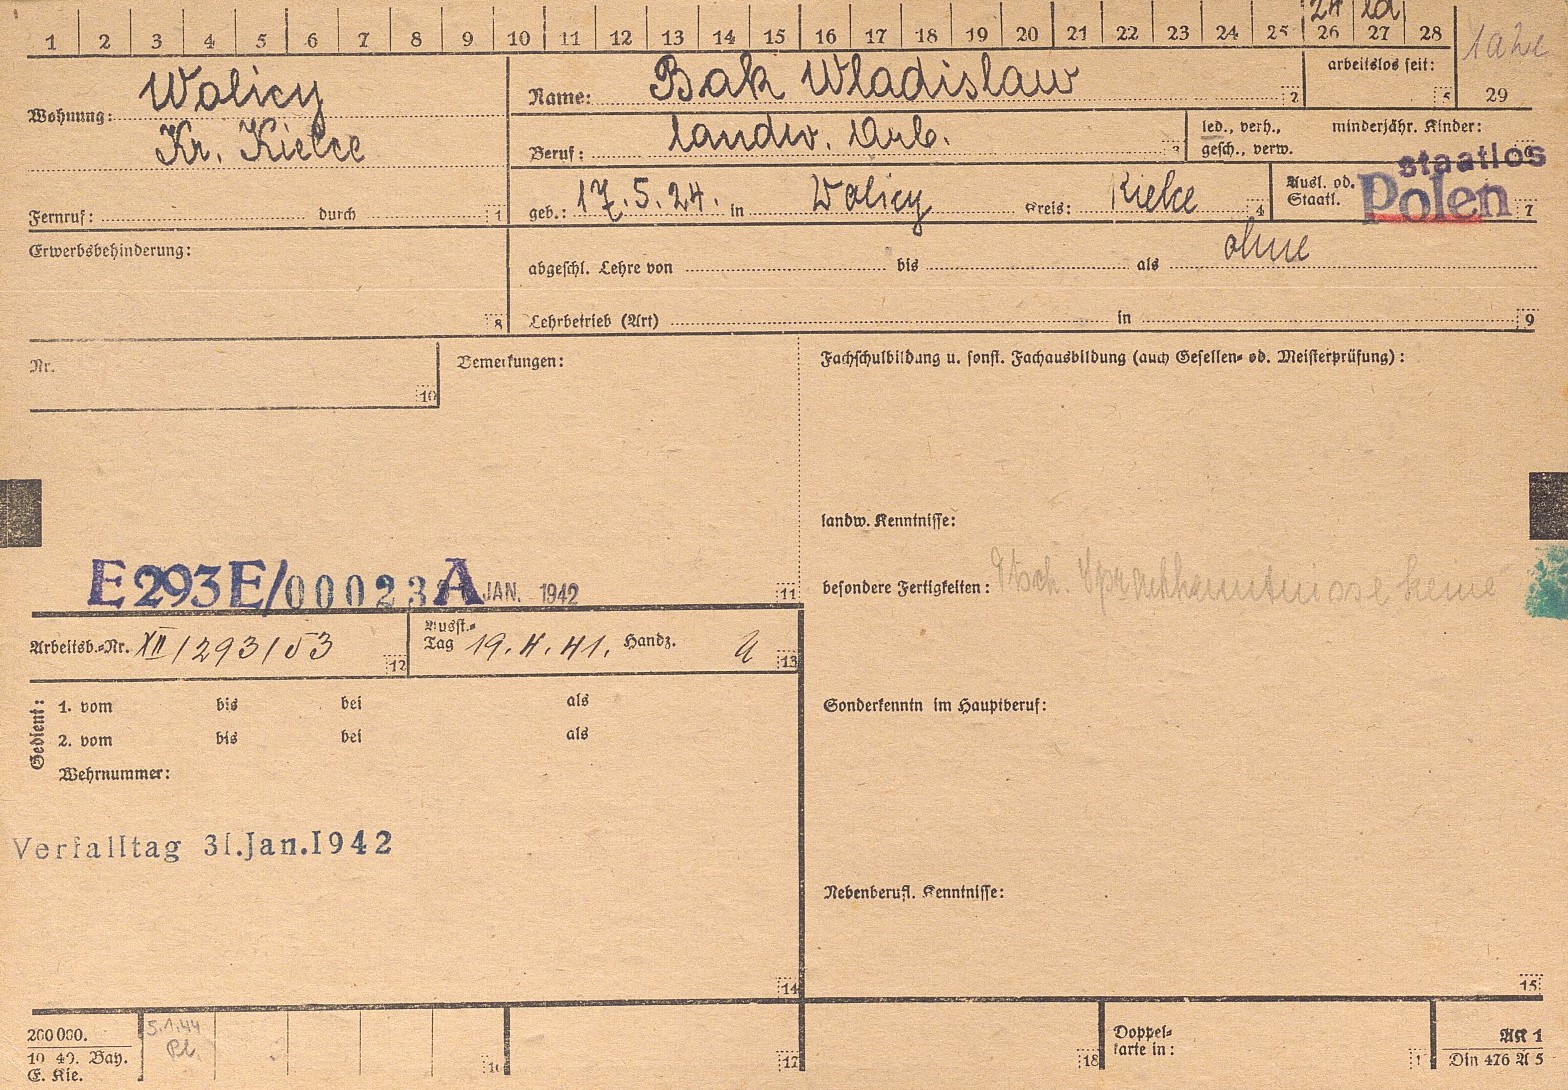 1 2 3 4 5 6 7 8 9 10 11 12 13 14 15 16 17 18 19 20 21 22 23 24 25 26 27 28
24
29
arbeitslos seit:
5
Wohnung: Wolicy
Kr. Kielce
Name: Bak Wladislaw 2
Beruf: landw. Arb. 3
led., verh.,
gesch., verw.
minderjähr. Kinder:
Fernruf: durch 1
geb.: 17.5.24. in Wolicy Kreis: Kielce 4
Ausl. od.
Staatl.
staatlos
Polen 7
Erwerbsbehinderung:
8
abgeschl. Lehre von bis als ohne
Lehrbetrieb (Art) in 9
Nr.
10
Bemerkungen:
Fachschulbildung u. sonst. Fachausbildung (auch Gesellen- od. Meisterprüfung):
landw. Kenntnisse:
besondere Fertigkeiten: Dtsch. Sprachkenntnisse keine
E293E/00023A JAN. 1942
11
Arbeitsb.-Nr. XII/293/53 12
Ausst.-
Tag 19.4.41. Handz.
13
Gedient:
1. vom bis bei als
2. vom bis bei als
Wehrnummer:
Sonderkenntn im Hauptberuf:
Verfalltag 31.Jan.1942
Nebenberufl. Kenntnisse:
14
15
200 000.
10 40. Bay.
E. Kie.
5.1.44
16
17
18
Doppel-
karte in:
AK 1
Din 476 A 5